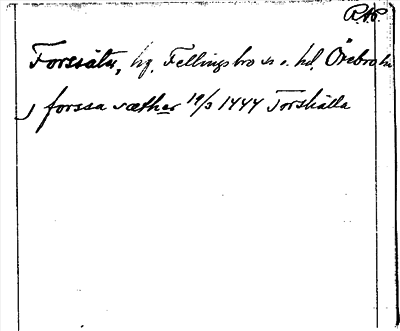 R.A.P.
Forssäter, hg. Fellingsbro sn o. hd, Örebro län
j forssa sæther 19/3 1444 Torshälla